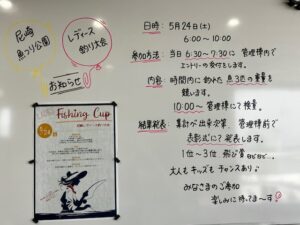 尼崎
魚つり公園
レディース
釣り大会
お知らせ
Fishing Cup
5/24
日時: 5月24日(土)
6:00～10:00
参加方法: 当日 6:30～7:30に 管理棟内で
エントリーの受付をします。
内容: 時間内に 釣れた 魚3匹の重量を
競います。
10:00～ 管理棟にて 検量。
結果発表: 集計が出来次第 管理棟前で
表彰式にて発表します。
1位～3位 飛び賞
大人もキッズも チャンスあり♪
みなさまのご参加
楽しみに待ってま～す